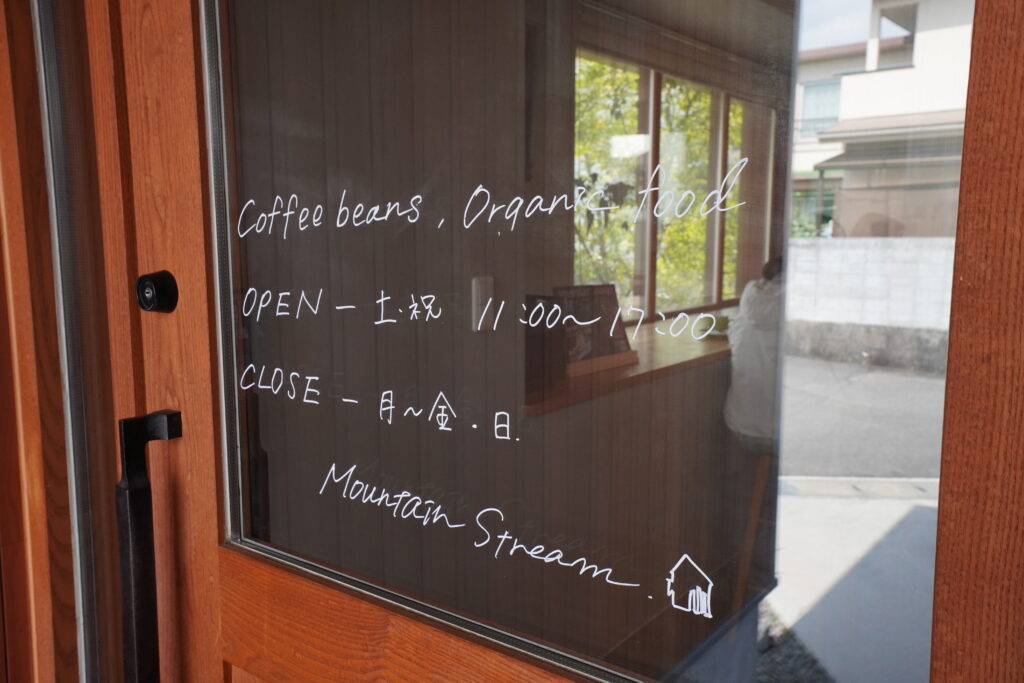 Coffee beans, Organic food
OPEN - 土・祝 11:00~17:00
CLOSE - 月~金・日.
Mountain Stream.